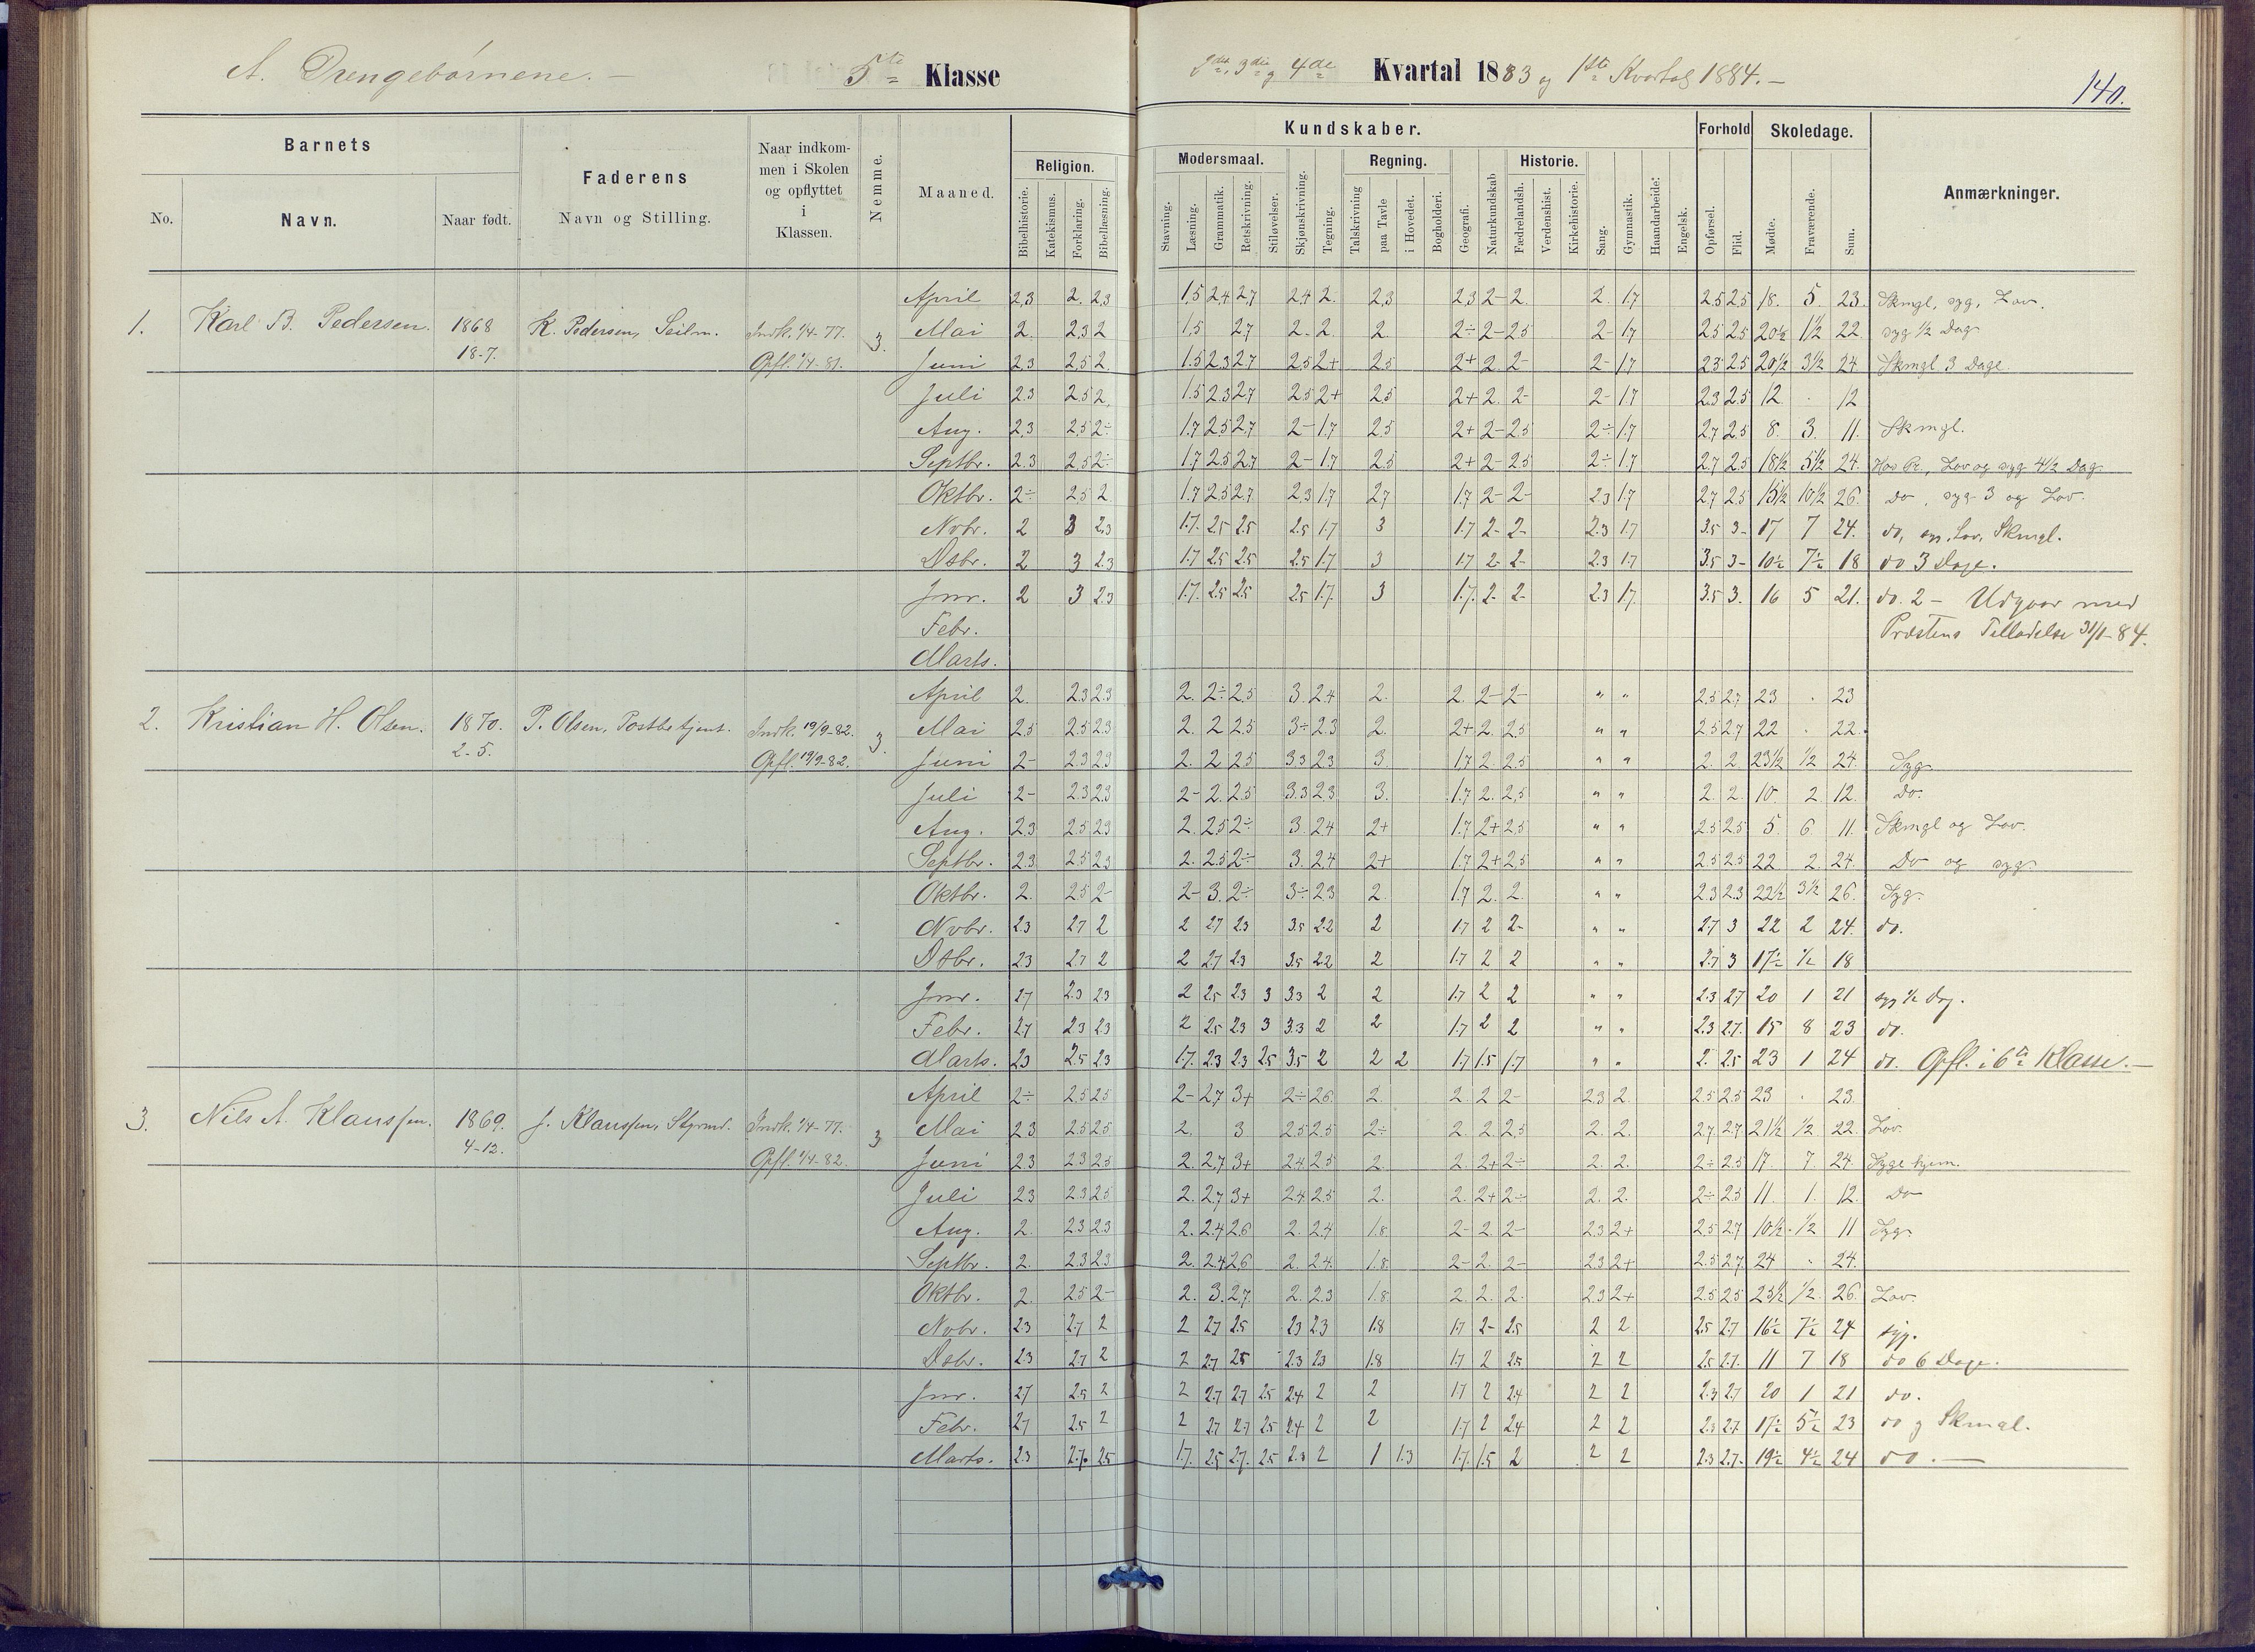 A. Drengebørnene. – 5te Klasse
2det, 3die og 4de Kvartal 1883 og 1ste Kvartal 1884. –
140.
Barnets
No. Navn. Naar født.
Faderens
Navn og Stilling.
Naar indkom-
men i Skolen
og opflyttet
i
Klassen.
Nemme.
Maaned.
Kundskaber.
Religion.
Bibelhistorie. Katekismus. Forklaring. Bibellæsning.
Modersmaal.
Stavning. Læsning. Grammatik. Retskrivning. Stiløvelser.
Skjønskrivning. Tegning.
Regning.
Talskrivning paa Tavle i Hovedet. Bogholderi.
Geografi. Naturkundskab
Historie.
Fædrelandsh. Verdenshist. Kirkehistorie.
Sang. Gymnastik. Haandarbeide. Engelsk.
Forhold
Opførsel. Flid.
Skoledage.
Mødte. Fraværende. Sum.
Anmærkninger.
1. Karl B. Pedersen. 1868 18-7. K. Pedersen, Seilm. Indk. 1/4-77. Opfl. 1/4-81. 3.
April 2,3 2. 2,3 1,5 2,4 2,7 2,4 2. 2,3 2,3 2- 2. 2. 1,7 2,5 2,5 18. 5. 23. Skmgl, syg, Lov.
Mai 2. 2,3 2 1,5 2,7 2- 2. 2. 2÷ 2- 2,5 2- 1,7 2,5 2,5 20½ 1½ 22. syg ½ Dag
Juni 2,3 2,5 2. 1,5 2,3 2,7 2,5 2+ 2,5 2+ 2. 2- 2- 1,7 2,3 2,5 20½ 3½ 24 Skmgl 3 Dage.
Juli 2,3 2,5 2. 1,5 2,3 2,7 2,5 2+ 2,5 2+ 2. 2- 2- 1,7 2,3 2,5 12. . 12
Aug. 2,3 2,5 2÷ 1,7 2,5 2,7 2- 1,7 2,5 2+ 2- 2,5 2÷ 1,7 2,7 2,5 8. 3. 11. Skmgl.
Septbr. 2,3 2,5 2÷ 1,7 2,5 2,7 2- 1,7 2,5 2+ 2- 2,5 2÷ 1,7 2,7 2,5 18½ 5½ 24. Hos Pr., Lov og syg 4½ Dag
Oktbr. 2÷ 2,5 2 1,7 2,5 2,7 2,3 1,7 2,7 1,7 2- 2- 2,3 1,7 2,7 2,5 15½ 10½ 26. Do, syg 3 og Lov.
Nvbr. 2 3 2,3 1.7. 2.5 2.5 2.5 1.7 3 1.7 2- 2- 2.3 1.7 3.5 3- 17 7 24. do, Lov, Skmgl.
Dsbr. 2 3 2.3 1.7 2.5 2.5 2.5 1.7 3 1.7 2- 2- 2.3 1.7 3.5 3- 10½ 7½ 18 do 3 Dage.
Jnr. 2 3 2.3 1.7. 2.5 2.5 2.5 1.7. 3 1.7. 2- 2- 2.3 1.7. 3.5 3. 16 5 21. do. 2 – Udgaar med
Febr. Præstens Tilladelse 31/1-84.
Marts.
2. Kristian H. Olsen. 1870. 2-5. P. Olsen, Postbetjent. Indk. 19/9-82. Opfl. 19/9-82. 3.
April 2. 2,3 2,3 2. 2÷ 2,5 3. 2,4 2. 2. 2- 2- " " 2,5 2,7 23 . 23
Mai 2,5 2,5 2,3 2. 2 2,5 3÷ 2,3 2. 2+ 2. 2,5 " " 2,5 2,7 22 . 22.
Juni 2- 2,3 2,3 2. 2 2,5 3,3 2,3 3. 1,7 2. 2,5 " " 2. 2. 23½ ½ 24. Syg
Juli 2- 2,3 2,3 2- 2. 2,5 3,3 2,3 3. 1,7 2. 2,5 " " 2. 2. 10. 2 12. Do.
Aug. 2,3 2,5 2,3 2. 2,5 2÷ 3. 2,4 2+ 1,7 2+ 2,5 " " 2,5 2,5 5. 6 11. Skmgl og Lov.
Septbr. 2,3 2,5 2,3 2. 2,5 2÷ 3. 2,4 2+ 1,7 2+ 2,5 " " 2,5 2,5 22 2. 24. Do og syg
Oktbr. 2. 2,5 2- 2- 3. 2÷ 3÷ 2,3 2. 1,7 2. 2. " " 2,3 2,3 22½ 3½ 26. Syg.
Nvbr. 2.3 2.7 2 2 2.7 2.3 3.5 2.2 2 1.7 2 2- " " 2.7 3 22 2 24. do.
Dsbr. 2.3 2.7 2 2 2.7 2.3 3.5 2.2 2 1.7 2 2 " " 2.7 3 17½ ½ 18
Jnr. 2.7 2.3 2.3 2 2.5 2.3 3 3.3 2 2 1.7 2 2 " " 2.3 2.7 20 1 21 syg ½ Dag.
Febr. 2.7 2.3 2.3 2 2.5 2.3 3 3.3 2 2 1.7 2 2 " " 2.3 2.7. 15 8 23 do.
Marts. 2.3 2.5 2.3 1.7. 2.3 2.3 2.5 3.5 2 2 2 1.7 1.5 1.7 " " 2. 2.5 23 1 24 do. Opfl. i 6te Klasse. –
3. Nils A. Klaussen. 1869. 4-12. J. Klaussen, Styrmd. Indk. 1/4-77. Opfl. 1/4-82. 3
April 2÷ 2,5 2,5 2- 2,7 3+ 2÷ 2,6 2. 2. 2. 2- 2,3 2. 2,5 2,5 23 . 23.
Mai 2,3 2,5 2,5 2. 3. 2,5 2,5 2÷ 2. 2. 2,5 2. 2. 2,7 2,7 21½ ½ 22. Lov.
Juni 2,3 2,3 2,5 2. 2,7 3+ 2,4 2,5 2. 2. 2+ 2÷ 2. 2. 2÷ 2,5 17. 7. 24. Syge hjem.
Juli 2,3 2,3 2,5 2. 2,7 3+ 2,4 2,5 2. 2. 2+ 2÷ 2. 2. 2÷ 2,5 11. 1. 12. Do
Aug. 2. 2,3 2,3 2. 2,4 2,6 2. 2,4 1,8. 2- 2. 2- 2,3 2+ 2,5 2,7 10½ ½ 11 Syg.
Septbr. 2. 2,3 2,3 2. 2,4 2,6 2. 2,4 1,8. 2- 2. 2- 2,3 2+ 2,5 2,7 24 . 24.
Oktbr. 2. 2,5 2- 2. 3. 2,7 2. 2,3 1,8. 2. 2. 2. 2,3 2+ 2,5 2,5 25½ ½. 26 Lov.
Nvbr. 2.3 2.7 2 2 2.7 2.5 2.3 2.3 1.8 1.7 2- 2.5 2 2 2.5 2.7 16½ 7½ 24 syg.
Dsbr. 2.3 2.7 2 2 2.7 2.5 2.3 2.3 1.8 1.7 2 2.5 2 2 2.5 2.7. 11 7 18 do 6 Dage.
Jnr. 2.7 2.5 2 2 2.7 2.7 2.5 2.4 2 2 1.7 2 2.4 2 2 2.3 2.7 20 1 21 do.
Febr. 2.7 2.5 2 2 2.7 2.7 2.5 2.4 2 2 1.7 2 2.4 2 2 2.3 2.7. 17½ 5½ 23 do og Skmgl.
Marts. 2.3 2.7. 2.5 1.7. 2.5 2.7. 2.5 2.3 2 1 1.3 1.7. 1.5 2 2 2 2.3 2.7. 19½ 4½ 24 do. –